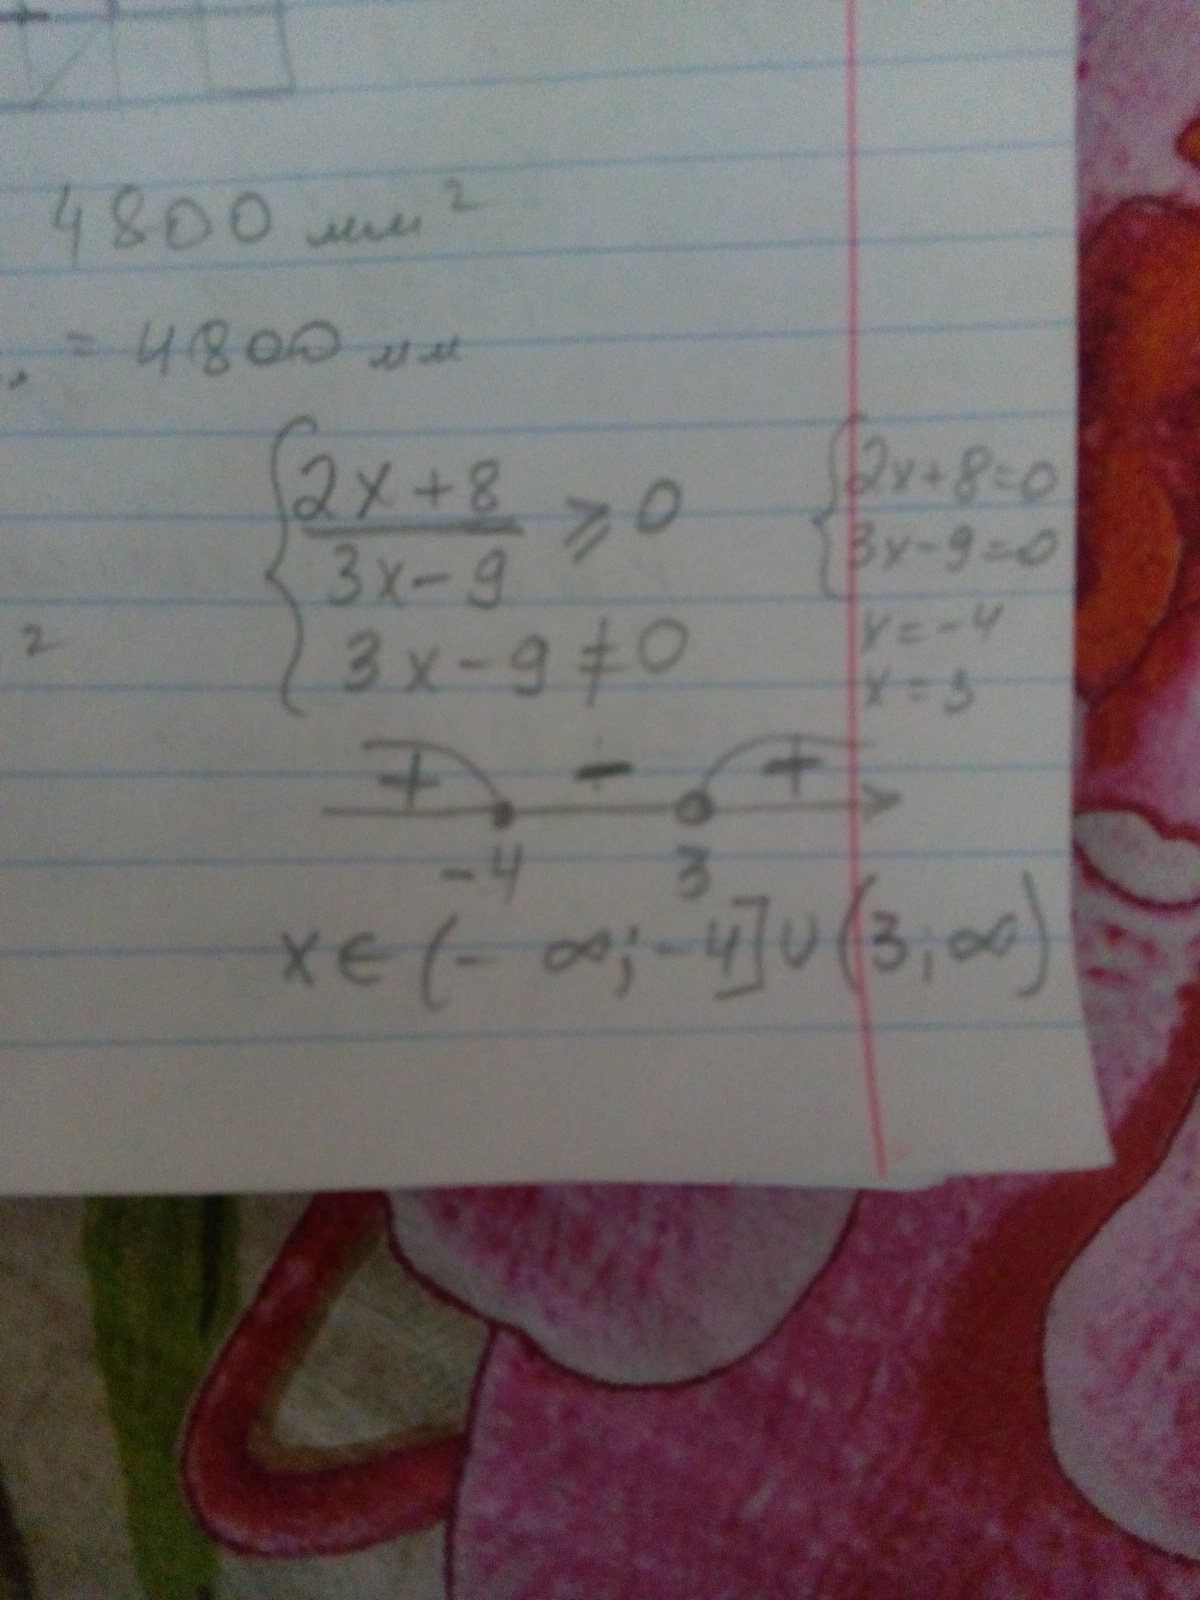 4800 мм²
= 4800 мм
2x+8
3x-9
≥ 0
3x-9≠0
2x+8=0
3x-9=0
x=-4
x=3
²
+ - +
-4 3
x∈(-∞;-4]∪(3;∞)